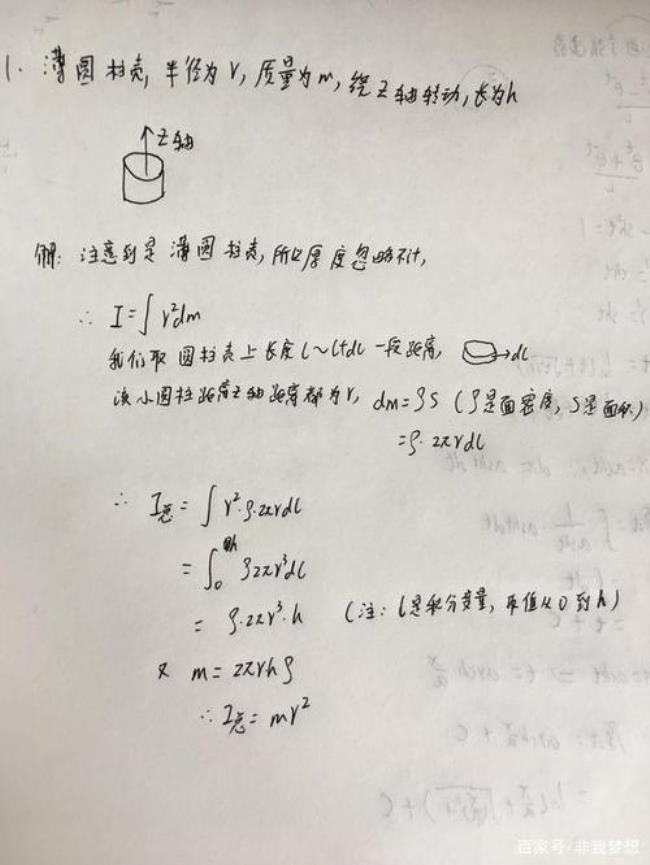 1. 薄圆柱壳, 半径为r, 质量为m, 绕Z轴转动, 长为h
Z轴
解: 注意到是薄圆柱壳, 所以厚度忽略不计,
∴ I=∫r²dm
我们取圆柱壳上长度l~l+dl一段距离, →dl
该小圆柱距离Z轴距离都为r, dm=ρS (ρ是面密度, S是面积)
=ρ·2πrdl
∴ I总=∫r²·ρ·2πrdl
=∫₀ʰρ2πr³dl
=ρ·2πr³·h (注: l是积分变量, 取值从0到h)
又 m=2πrhρ
∴I总=mr²
百家号/非我梦想